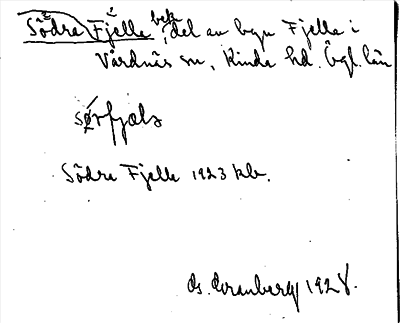 Södra Fjelle, bek. del av byn Fjelle i
Vårdnäs sn, Kinda hd. Ögl. län
sørfjæla
Södra Fjelle 1923 kb.
Cranberg 1928.